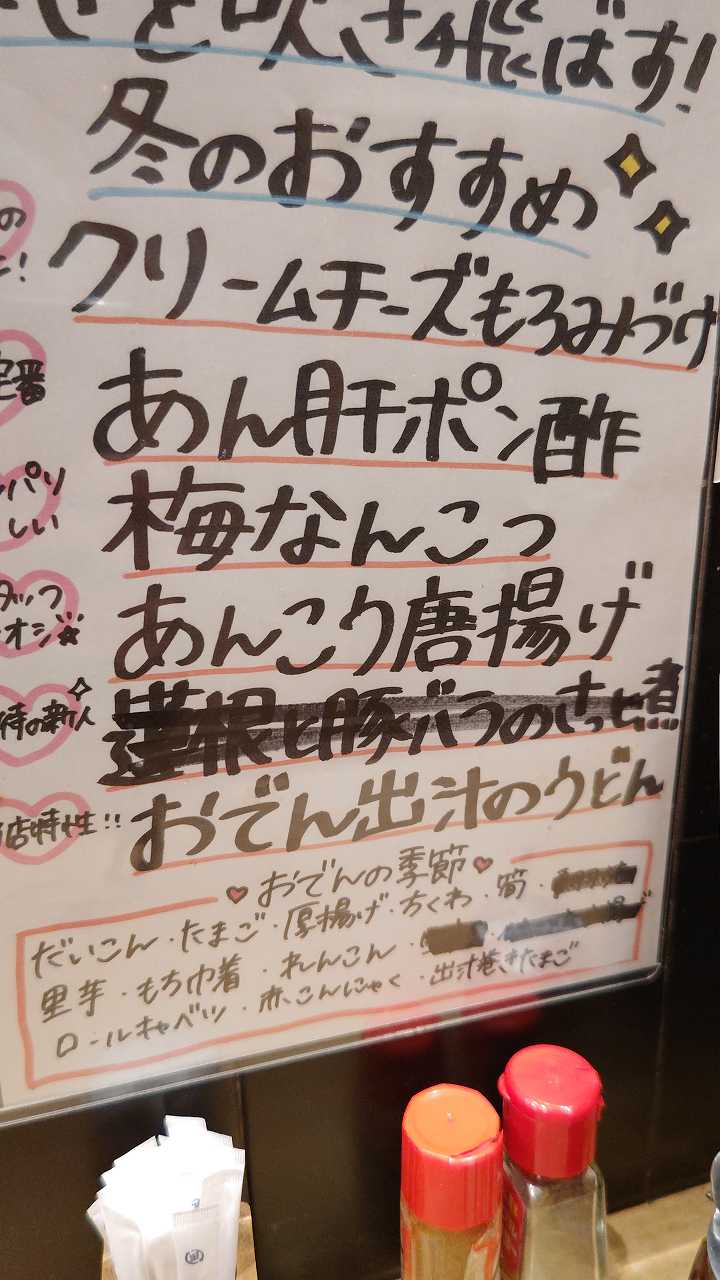 を吹き飛ばす!
冬のおすすめ
の
クリームチーズもろみづけ
!
定番
あん肝ポン酢
パリ
しい
梅なんこつ
タップ
オジ
あんこう唐揚げ
待の新人
蓮根と豚バラのさっと煮
当店特性!!
おでん出汁のうどん
おでんの季節
だいこん・たまご・厚揚げ・ちくわ・筍・
里芋・もち巾着・れんこん・
ロールキャベツ・赤こんにゃく・出汁巻きたまご